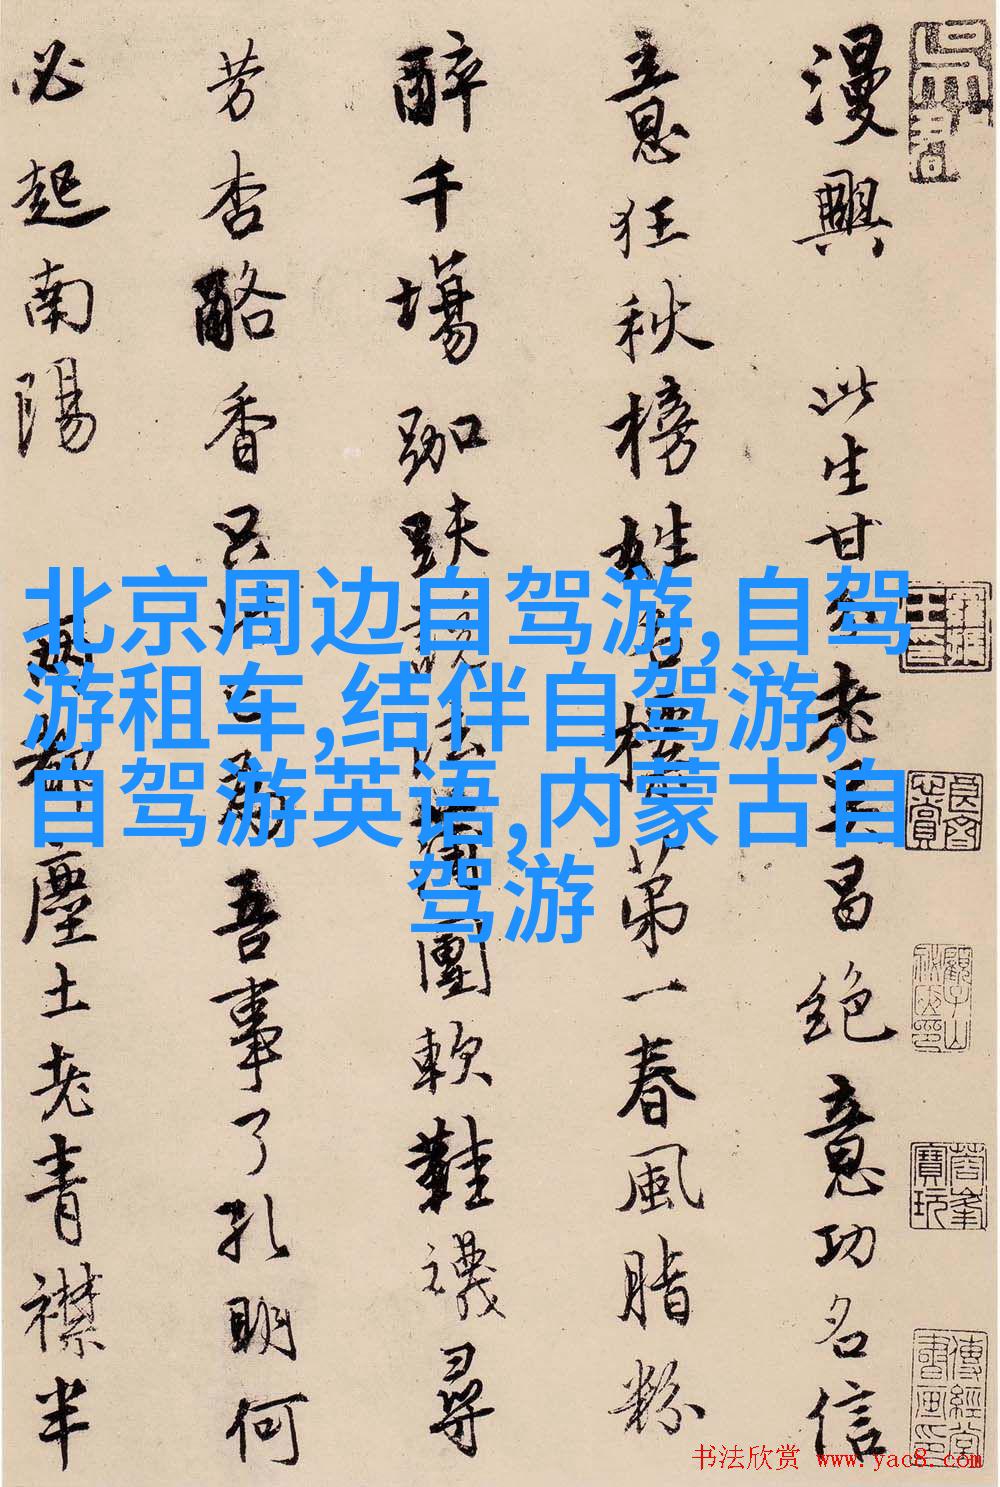 漫興 此生甘分老吴昌絶意功名信
意狂秋榜姓名標第一春風脂粉
醉千場跏趺法團軟鞋襪尋
芳杏酪香只吾事了孔明何
必起南陽 兩都塵土老青襟半
北京周边自驾游,自驾
游租车,结伴自驾游,
自驾游英语,内蒙古自
驾游
书法欣赏 www.yac8.com